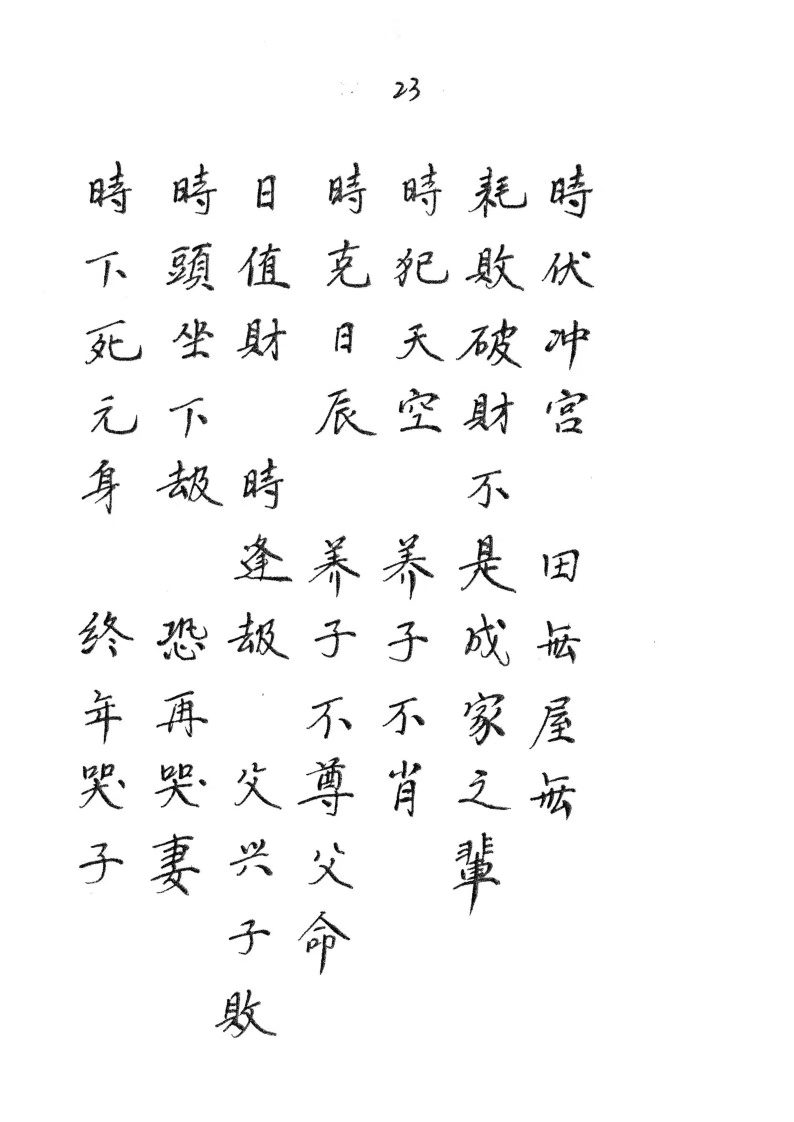 23
時伏冲宮 田無屋無
耗敗破財不是成家之輩
時犯天空 养子不肖
時克日辰 养子不尊父命
日值財 時逢刼 父兴子敗
時頭坐下刼 恐再哭妻
時下死元身 終年哭子